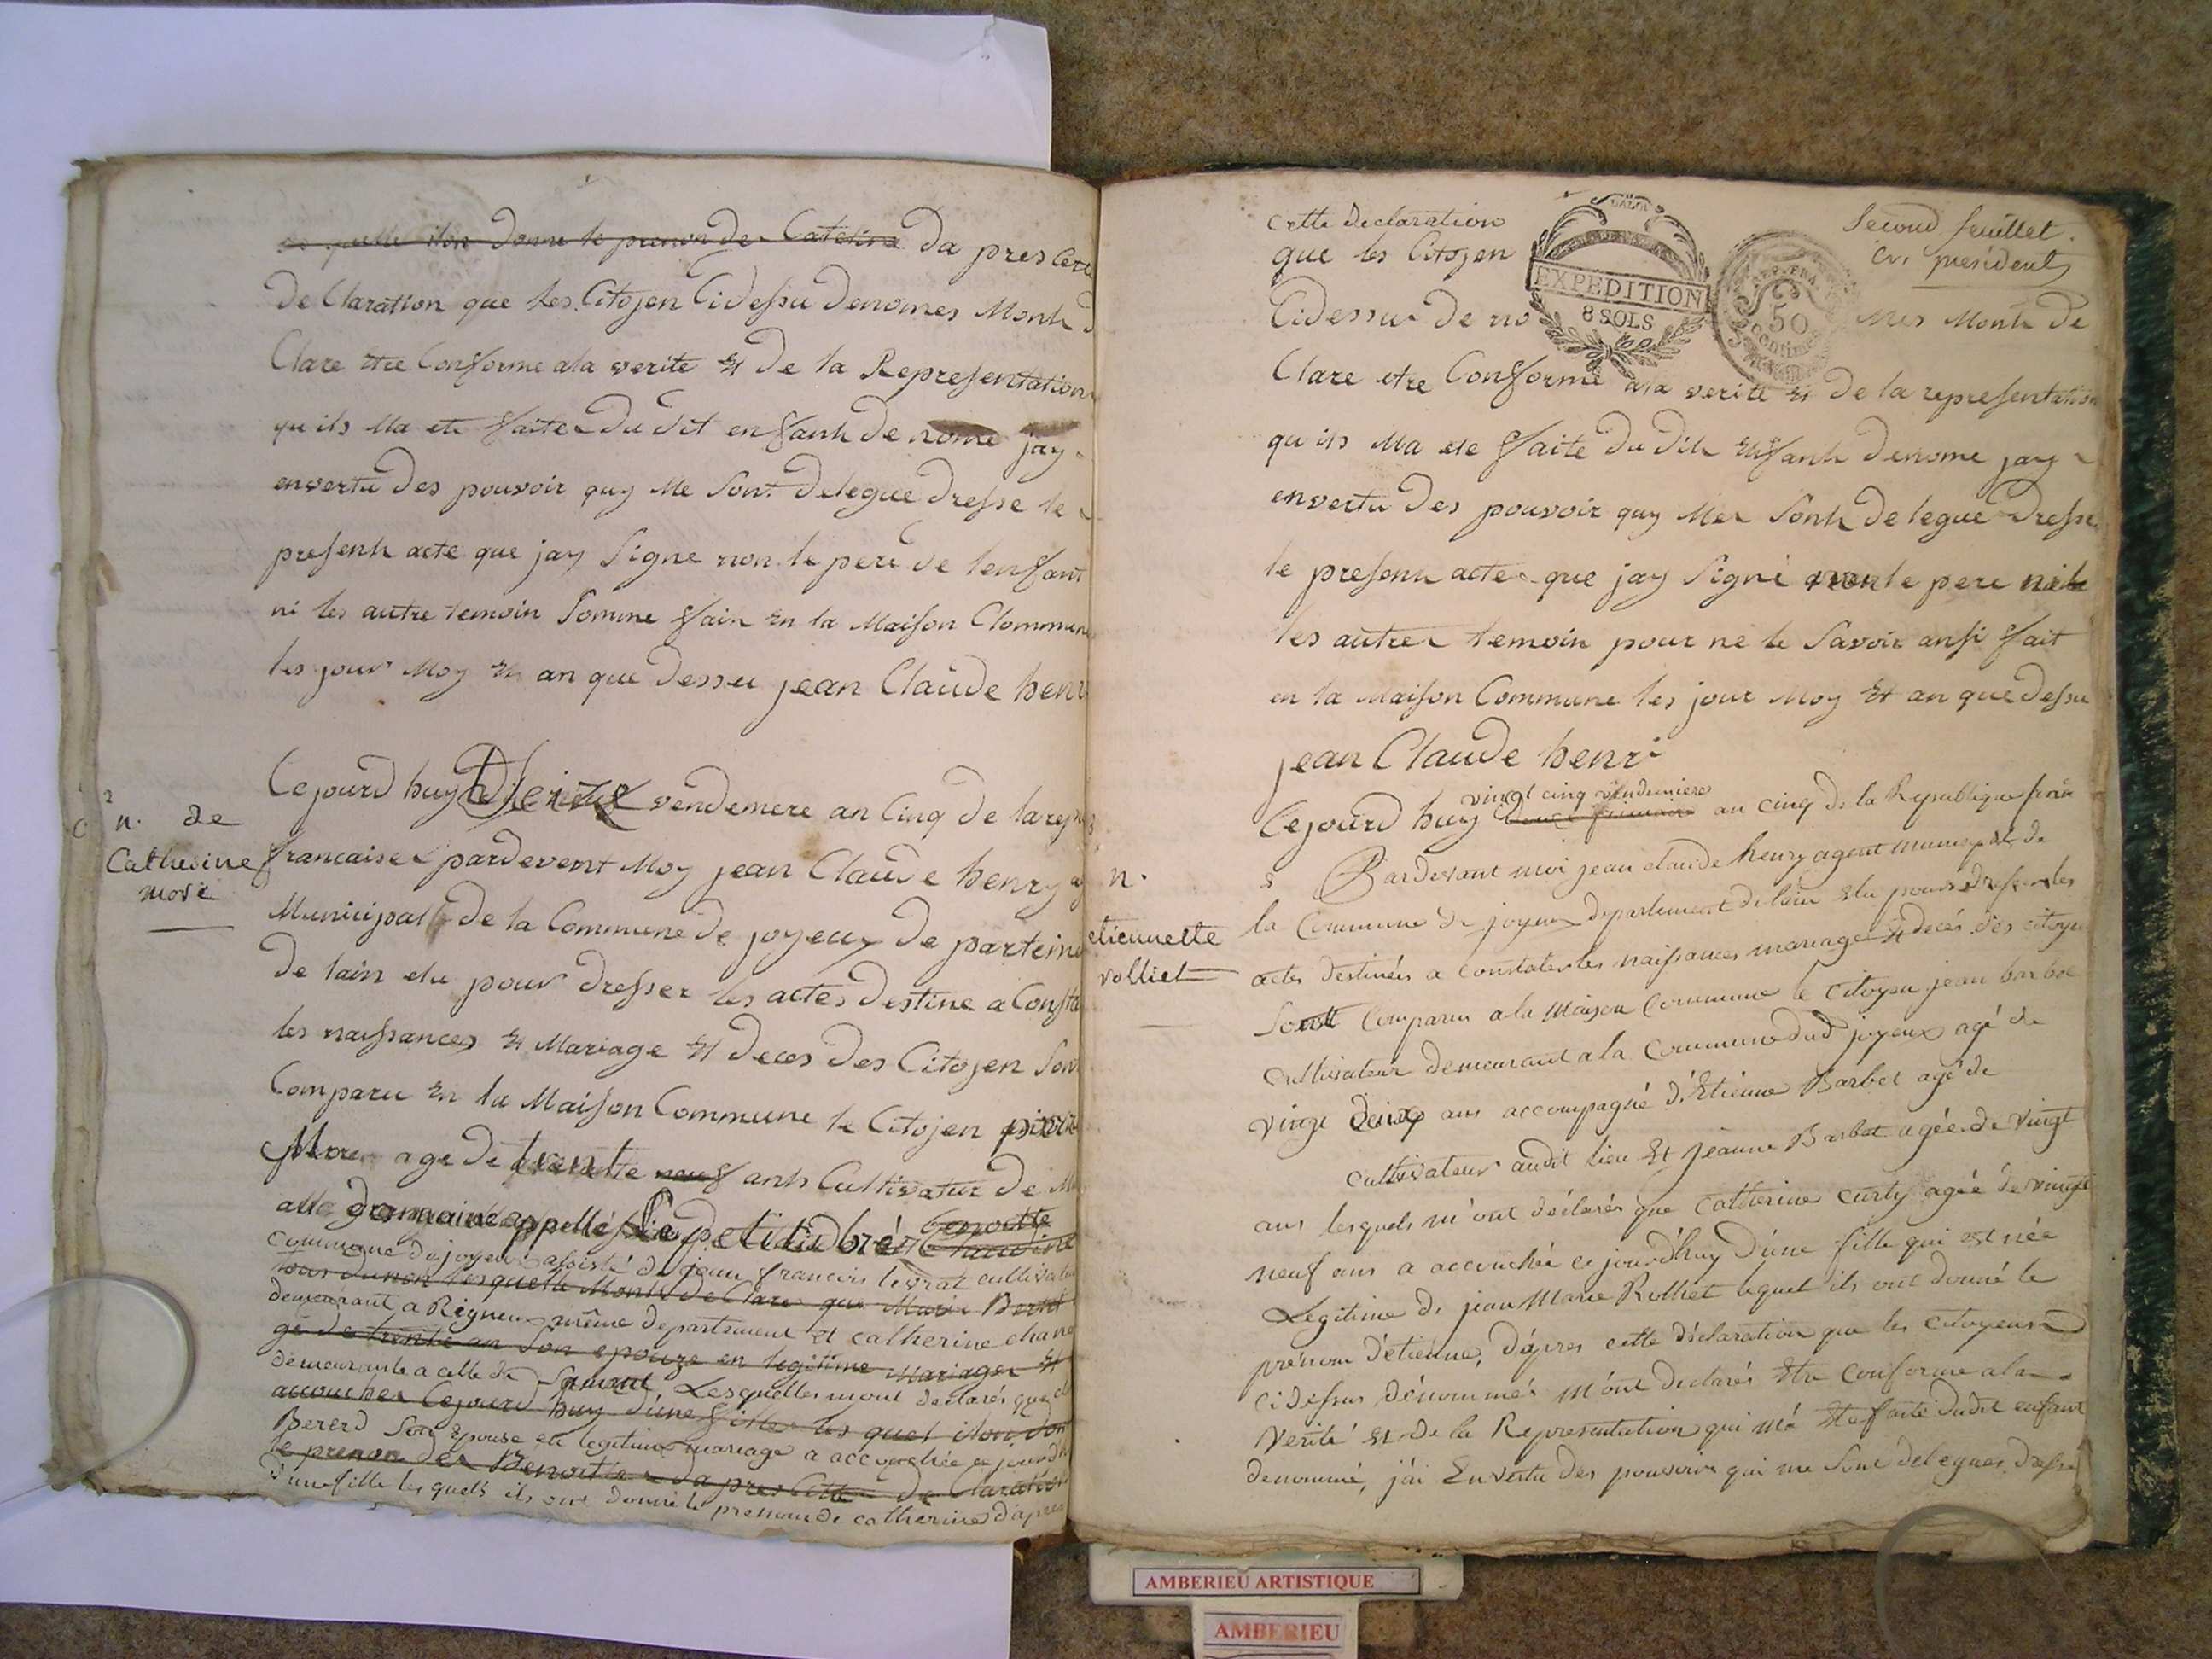 donne le prenon de Catelina Da pres Cette
De Claration que les Citoyen Cidessu Denomes Monh d
Clare Etre Conforme ala verite Et De la Representation
qu ils Ma ete faite Du Dit enfanh De nome jay
envertu Des pouvoir quy Me Sont Delegue Dresse le
presenh acte que jay Signe non le pere de lenfant
ni les autre temoin Somme fain En la Maison Clommune
les jour Moy En an que Dessu jean Claude henr
n. de
Catherine
moré
Cejourd huy vendemere an Cinq de la rep
francaise pardevent Moy jean Claude henry ag
Municipall de la Commune de joyeux De parteme
De lain elu pour Dresser les actes Destine a Consta
les naissances Et Mariage Et Deces Des Citoyen Son
Comparu En la Maison Commune le Citoyen
age De trente neuf anh Cultivatur De M
domaine appellé Le petit Benoitte
commune de joyeux assisté de jean francois levrat cultivateu
lesquelle Monh De Clare que Marie Berrd
demeurant a Rigneu même département et catherine chane
ge de trente an Son epouze en legitime Mariager Et
demeurante a celle de Lesquelles mont declarés que
accoucher Cejourd huy Dune fille les quel ilon don
Bererd Son Epouse en legitime mariage a accouchée ce jourd'h
le prenon de Benoitte Da pres Cette De Claration
d'une fille lesquels ils ont donné le prenom de catherine d'apres
Second feuillet.
president
cette declaration
que les Citoyen
EXPEDITION
8 SOLS
REP. FRA.
50
centimes
Cidessu De no mes Monh De
Clare etre Conforme ala verite Et De la representation
qu ils Ma ete faite Du Dih Enfanh Denome jay
envertu Des pouvoir quy Me Sonh De legue Dresse
le presenh acte que jay Signé non le pere ni le
les autre temoin pour ne le Savoir ansi fait
en la Maison Commune les jour Moy Et an que Dessu
jean Claude henri
n.
etiennette
volliet
vingt cinq vindemiere
Cejourd huy an cinq de la Republique
Pardevant moi jean claude henry agent municipal de
la Commune de joyeux departement de lain Elu pour dresser les
actes destinées a constater les naissances mariage Et decés des citoyen
Sont Comparu a la Maison Commune le Citoyen jean barbet
Cultivateur demeurant a la Commune dud joyeux agé de
vingt deux ans accompagné d'Etienne Barbet agé de
cultivateur audit lieu Et Jeanne Barbet agée de vingt
ans lesquels m'ont déclarés que Catherine curty agée de vingt
neuf ans a accouchée ce jourd'huy d'une fille qui est née
Legitime de jean Marie lequel ils ont donné le
prénom d'etienne, d'apres cette déclaration que les citoyens
cidessus dénommés m'ont declarés Etre conforme a la
Verité Et de la Representation qui m'a Ete faite dudit enfant
denommé, j'ai En vertu des pouvoirs qui me Sont delegues dressé
AMBERIEU ARTISTIQUE
AMBERIEU